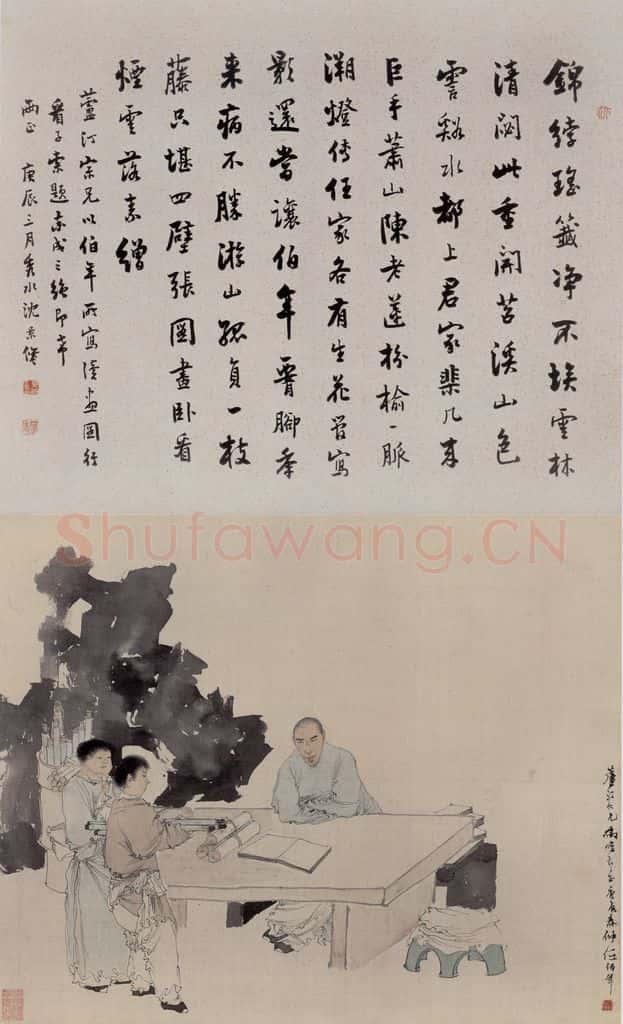 錦綍瑤籤净不埃雲林
清閟此重開苕溪山色
霅谿水都上君家棐几来
巨手蕭山陳老蓮枌榆一脈
溯燈傳任家各有生花管寫
影還當讓伯年腳年
来病不勝游山孤負一枝
藤只堪四壁張圖畫卧看
煙雲落素繒
蘆汀宗兄以伯年所寫讀畫圖行
看子索題率成三絶即希
兩正 庚辰三月秀水沈景修
Shufawang.CN
蘆汀大兄正庚辰春仲任伯年